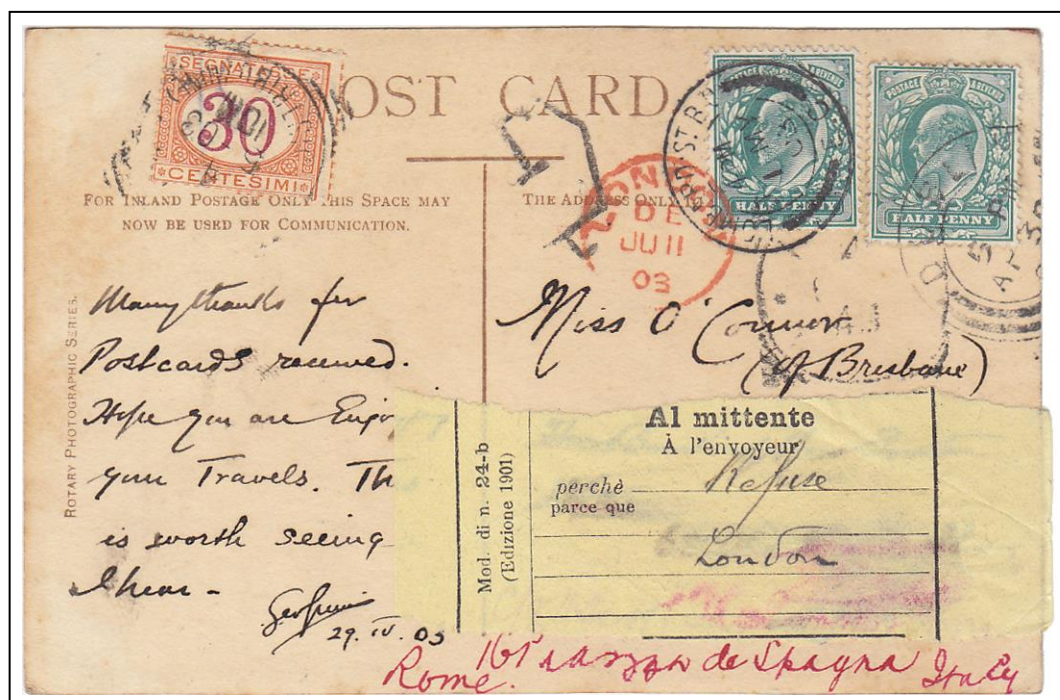 POST CARD
SEGNATASSE
30
CENTESIMI
FOR INLAND POSTAGE ONLY THIS SPACE MAY
NOW BE USED FOR COMMUNICATION.
THE ADDRESS ONLY TO
POSTAGE & REVENUE
HALF PENNY
POSTAGE & REVENUE
HALF PENNY
LONDON
DE
JU 11
03
T
ROTARY PHOTOGRAPHIC SERIES.
Many thanks for
Postcards received.
Hope you are Enjoy
your Travels. Th
is worth seeing
I hear -
29. IV. 03
Miss O'Connor
(of Brisbane)
Mod. di n. 24-b
(Edizione 1901)
Al mittente
À l'envoyeur
perchè
parce que
Refuse
London
161 de Spagna
Rome. Italy